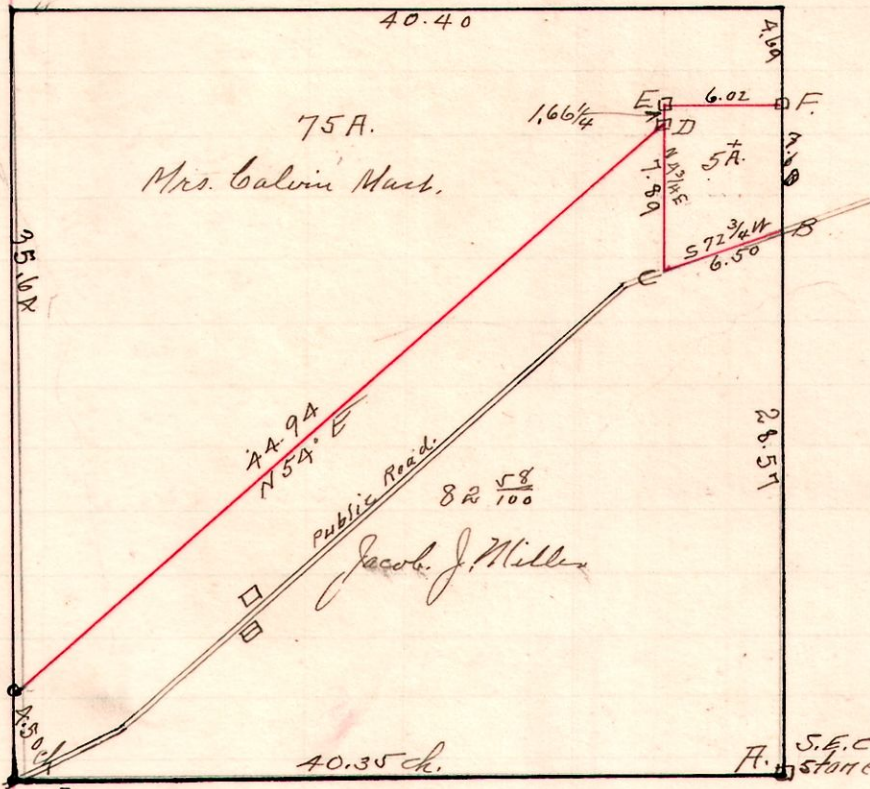 40.40
4.69
75A.
Mrs. Calvin Mast.
1.66¼
E
6.02
F.
D
5A.
7.89
S 72¾ W
6.50
B
C
35.64
44.94
N 54° E
Public Road.
82 58/100
Jacob. J. Miller
28.57
4.50 ch
40.35 ch.
A.
S.E.C
Stone